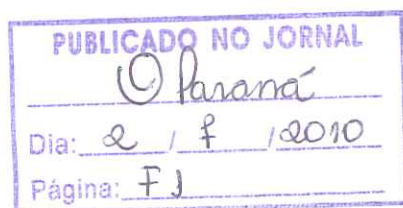 PUBLICADO NO JORNAL
O Paraná
Dia: 2 / 7 / 2010
Página: F1